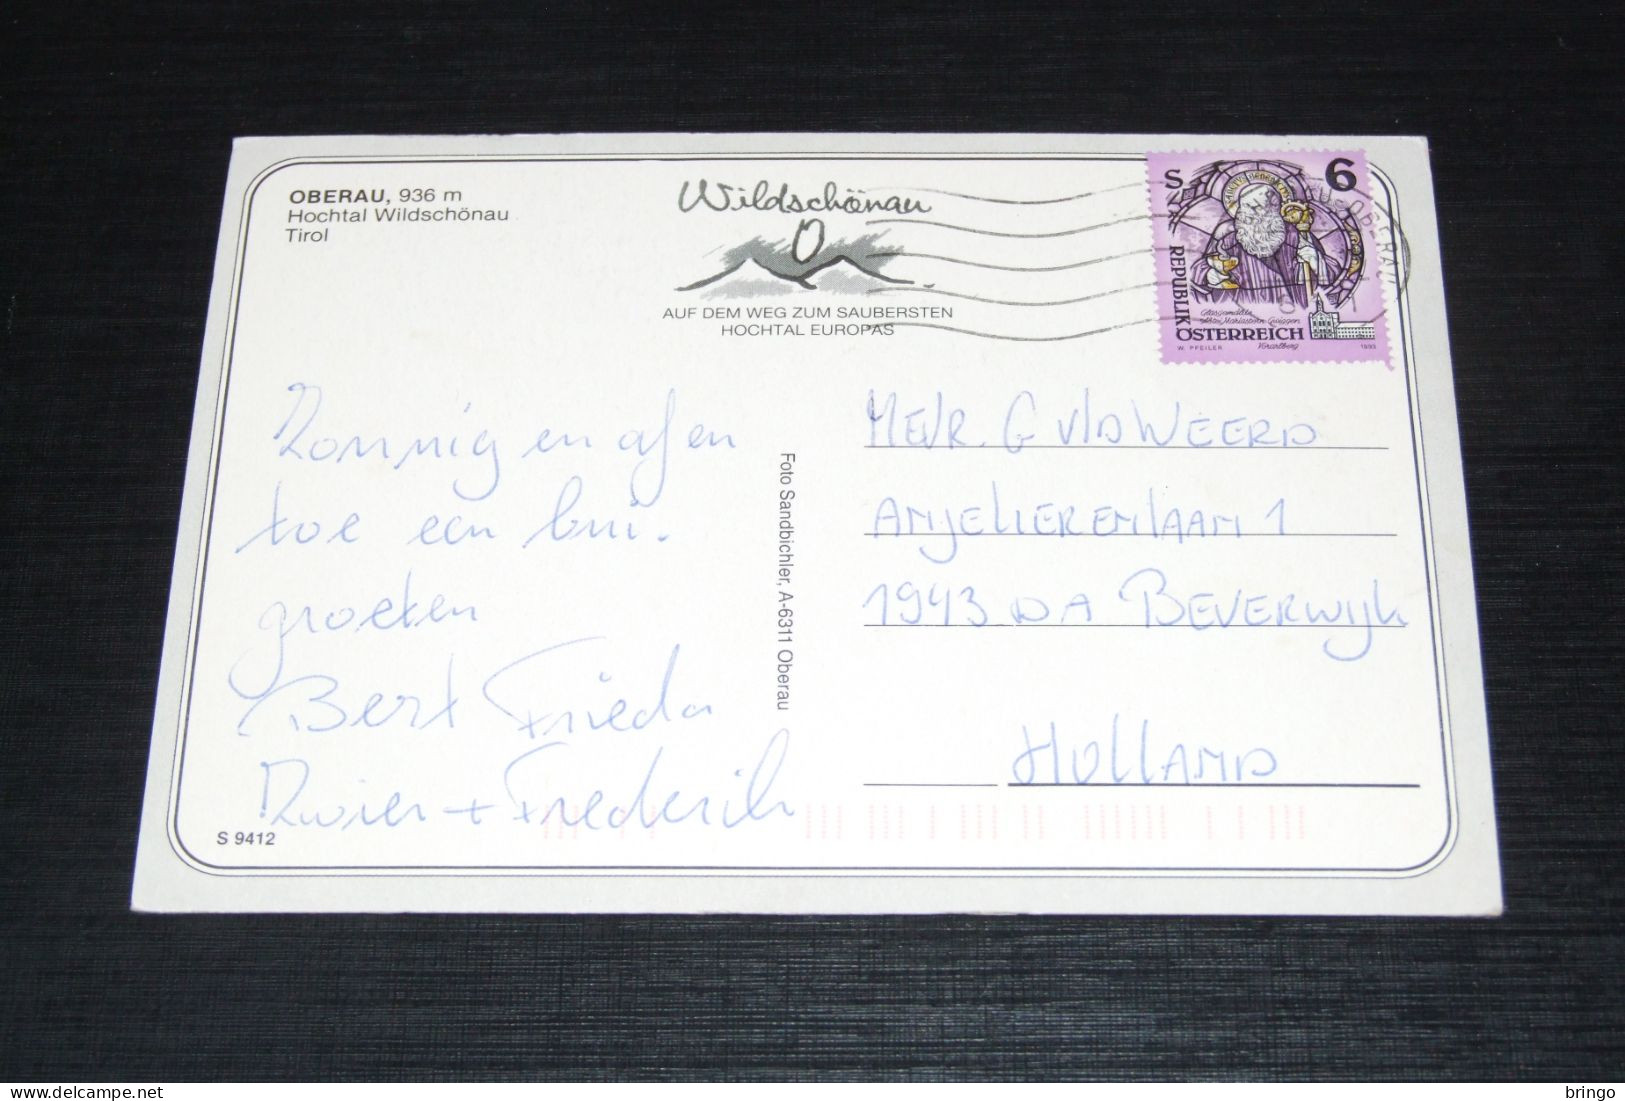 OBERAU, 936 m
Hochtal Wildschönau
Tirol
Wildschönau
AUF DEM WEG ZUM SAUBERSTEN
HOCHTAL EUROPAS
S 6
REPUBLIK
ÖSTERREICH
W. PFEILER Vorarlberg 1993
Zonnig en af en
toe een bui.
groeten
Bert Frieda
+ Frederik
S 9412
Foto Sandbichler, A-6311 Oberau
MEVR. G V/D WEERD
ANJELIERENLAAN 1
1943 DA BEVERWIJK
HOLLAND
bringo